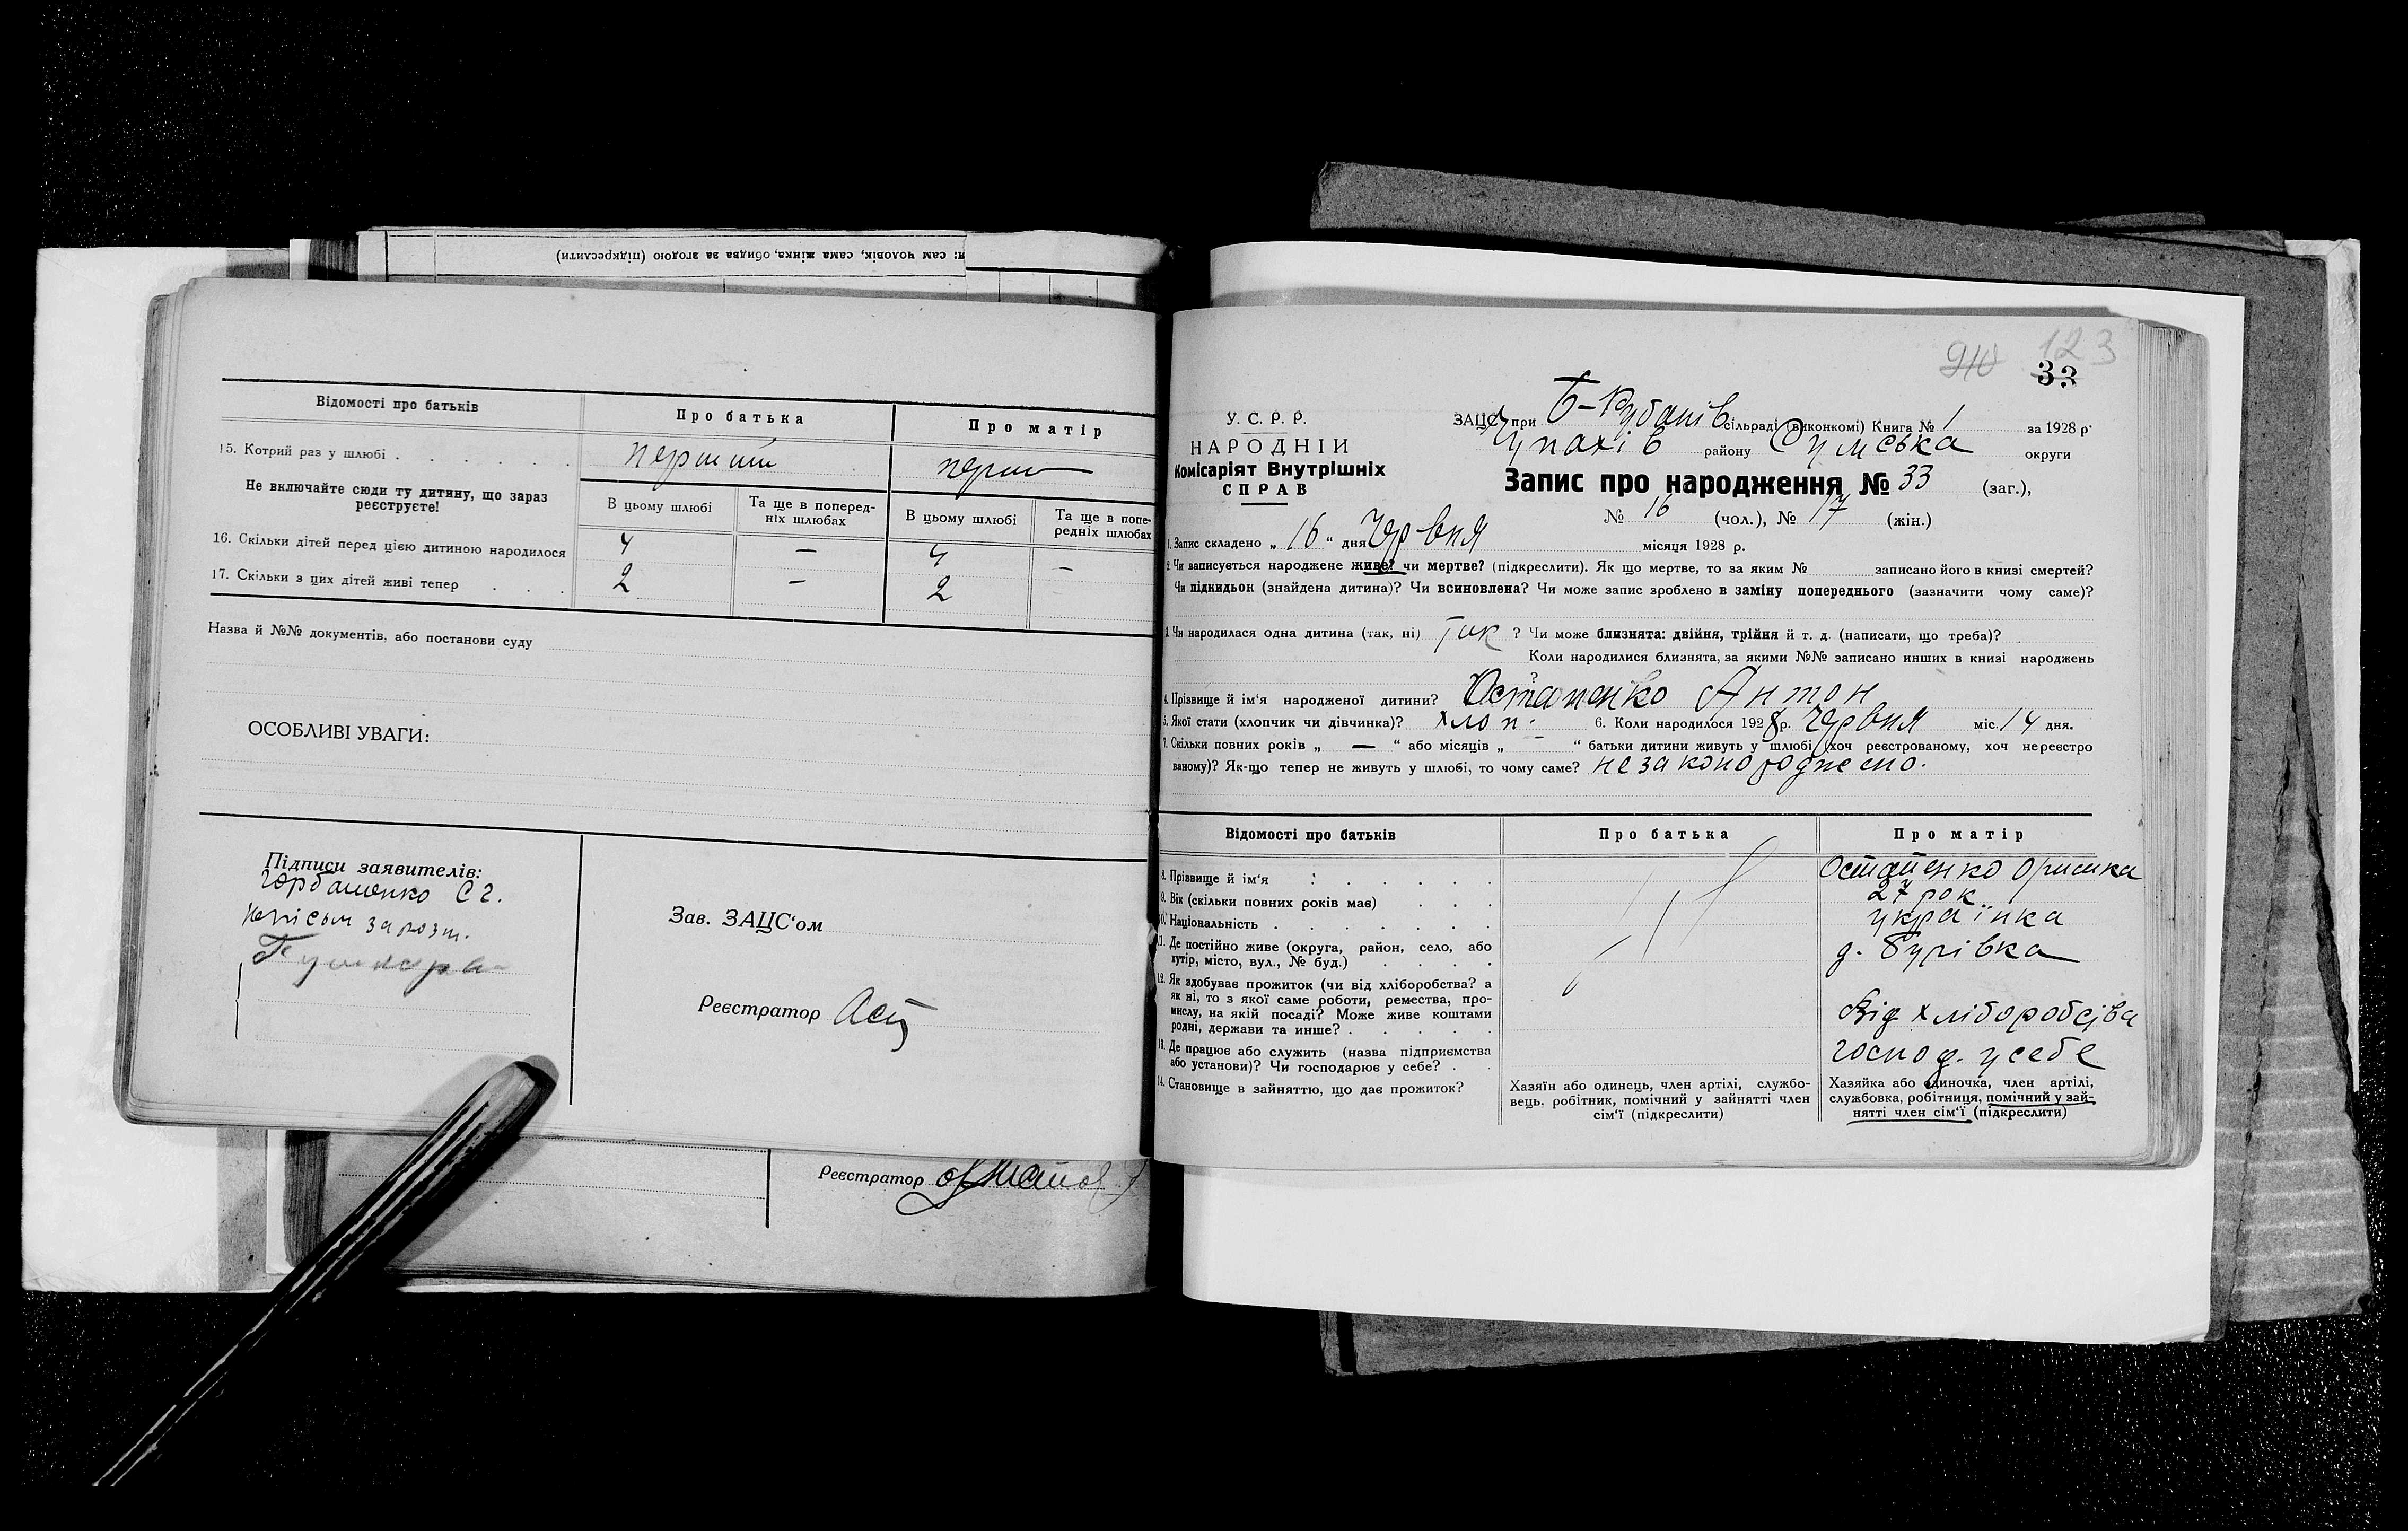 и: сам чоловік, сама жінка, обидва за згодою (підкреслити)
Відомості про батьків
Про батька
Про матір
15. Котрий раз у шлюбі
перший
перш
Не включайте сюди ту дитину, що зараз
реєструєте!
В цьому шлюбі
Та ще в поперед-
ніх шлюбах
В цьому шлюбі
Та ще в попе-
редніх шлюбах
16. Скільки дітей перед цією дитиною народилося
4 — 4 —
17. Скільки з цих дітей живі тепер
2 — 2
Назва й №№ документів, або постанови суду
ОСОБЛИВІ УВАГИ:
Підписи заявителів:
Горбаненко С Г.
Зав. ЗАЦС'ом
Реєстратор
Реєстратор
123
33
У. С. Р. Р.
НАРОДНІЙ
Комісаріят Внутрішніх
СПРАВ
ЗАЦС при Б-Рубанів сільраді (виконкомі) Книга № 1 за 1928 р.
Чупахів району Сумська округи
Запис про народження № 33 (заг.),
№ 16 (чол.), № 17 (жін.)
1. Запис складено „ 16 “ дня Червня місяця 1928 р.
2. Чи записується народжене живе? чи мертве? (підкреслити). Як що мертве, то за яким № записано його в книзі смертей?
Чи підкидьок (знайдена дитина)? Чи всиновлена? Чи може запис зроблено в заміну попереднього (зазначити чому саме)?
3. Чи народилася одна дитина (так, ні) так ? Чи може близнята: двійня, трійня й т. д. (написати, що треба)?
Коли народилися близнята, за якими №№ записано инших в книзі народжень
?
4. Прізвище й ім'я народженої дитини? Остапенко Антон
5. Якої стати (хлопчик чи дівчинка)? хлоп. 6. Коли народилося 1928 р. Червня міс. 14 дня.
7. Скільки повних років „ — “ або місяців „ – “ батьки дитини живуть у шлюбі (хоч реєстрованому, хоч нереєстро
ваному)? Як-що тепер не живуть у шлюбі, то чому саме? незаконорождено.
Відомості про батьків
Про батька
Про матір
8. Прізвище й ім'я
Остапенко Оришка
9. Вік (скільки повних років має)
27 рок
10. Національність
українка
11. Де постійно живе (округа, район, село, або
хутір, місто, вул., № буд.)
12. Як здобуває прожиток (чи від хліборобства? а
як ні, то з якої саме роботи, ремества, про-
мислу, на якій посаді? Може живе коштами
родні, держави та инше?
Від хліборобства
13. Де працює або служить (назва підприємства
або установи)? Чи господарює у себе?
господ. у себе
14. Становище в зайняттю, що дає прожиток?
Хазяїн або одинець, член артілі, службо-
вець, робітник, помічний у зайнятті член
сім'ї (підкреслити)
Хазяйка або одиночка, член артілі,
службовка, робітниця, помічний у зай-
нятті член сім'ї (підкреслити)